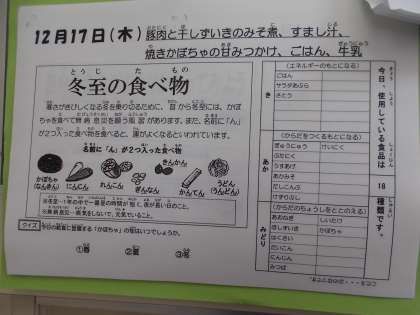 12月17日(木) 豚肉と干しずいきのみそ煮、すまし汁、
焼きかぼちゃの甘みつかけ、ごはん、牛乳
とうじ た もの
冬至の食べ物
寒さがきびしくなる冬を乗りこえるために、昔から冬至には、かぼ
ちゃを食べて無病息災を願う風習があります。また、名前に「ん」
が2つ入った食べ物を食べると、運がよくなるといわれています。
名前に「ん」が2つ入った食べ物
かぼちゃ
(なんきん)
にんじん
れんこん
ぎんなん
きんかん
かんてん
うどん
(うんどん)
クイズ
今日の給食に登場する「かぼちゃ」の旬はいつでしょうか。
①春 ②夏 ③冬
今日、使用している食品は
18
種類です。
き
(エネルギーのもとになる)
ごはん
サラダあぶら
さとう
あか
(からだをつくるもとになる)
ぎゅうにゅう けいにく
ぶたにく
うすあげ
あかみそ
だしこんぶ
けずりぶし
みどり
(からだのちょうしをととのえる)
あおねぎ しいたけ
ほしずいき かぼちゃ
はくさい
だいこん
にんじん
みつば